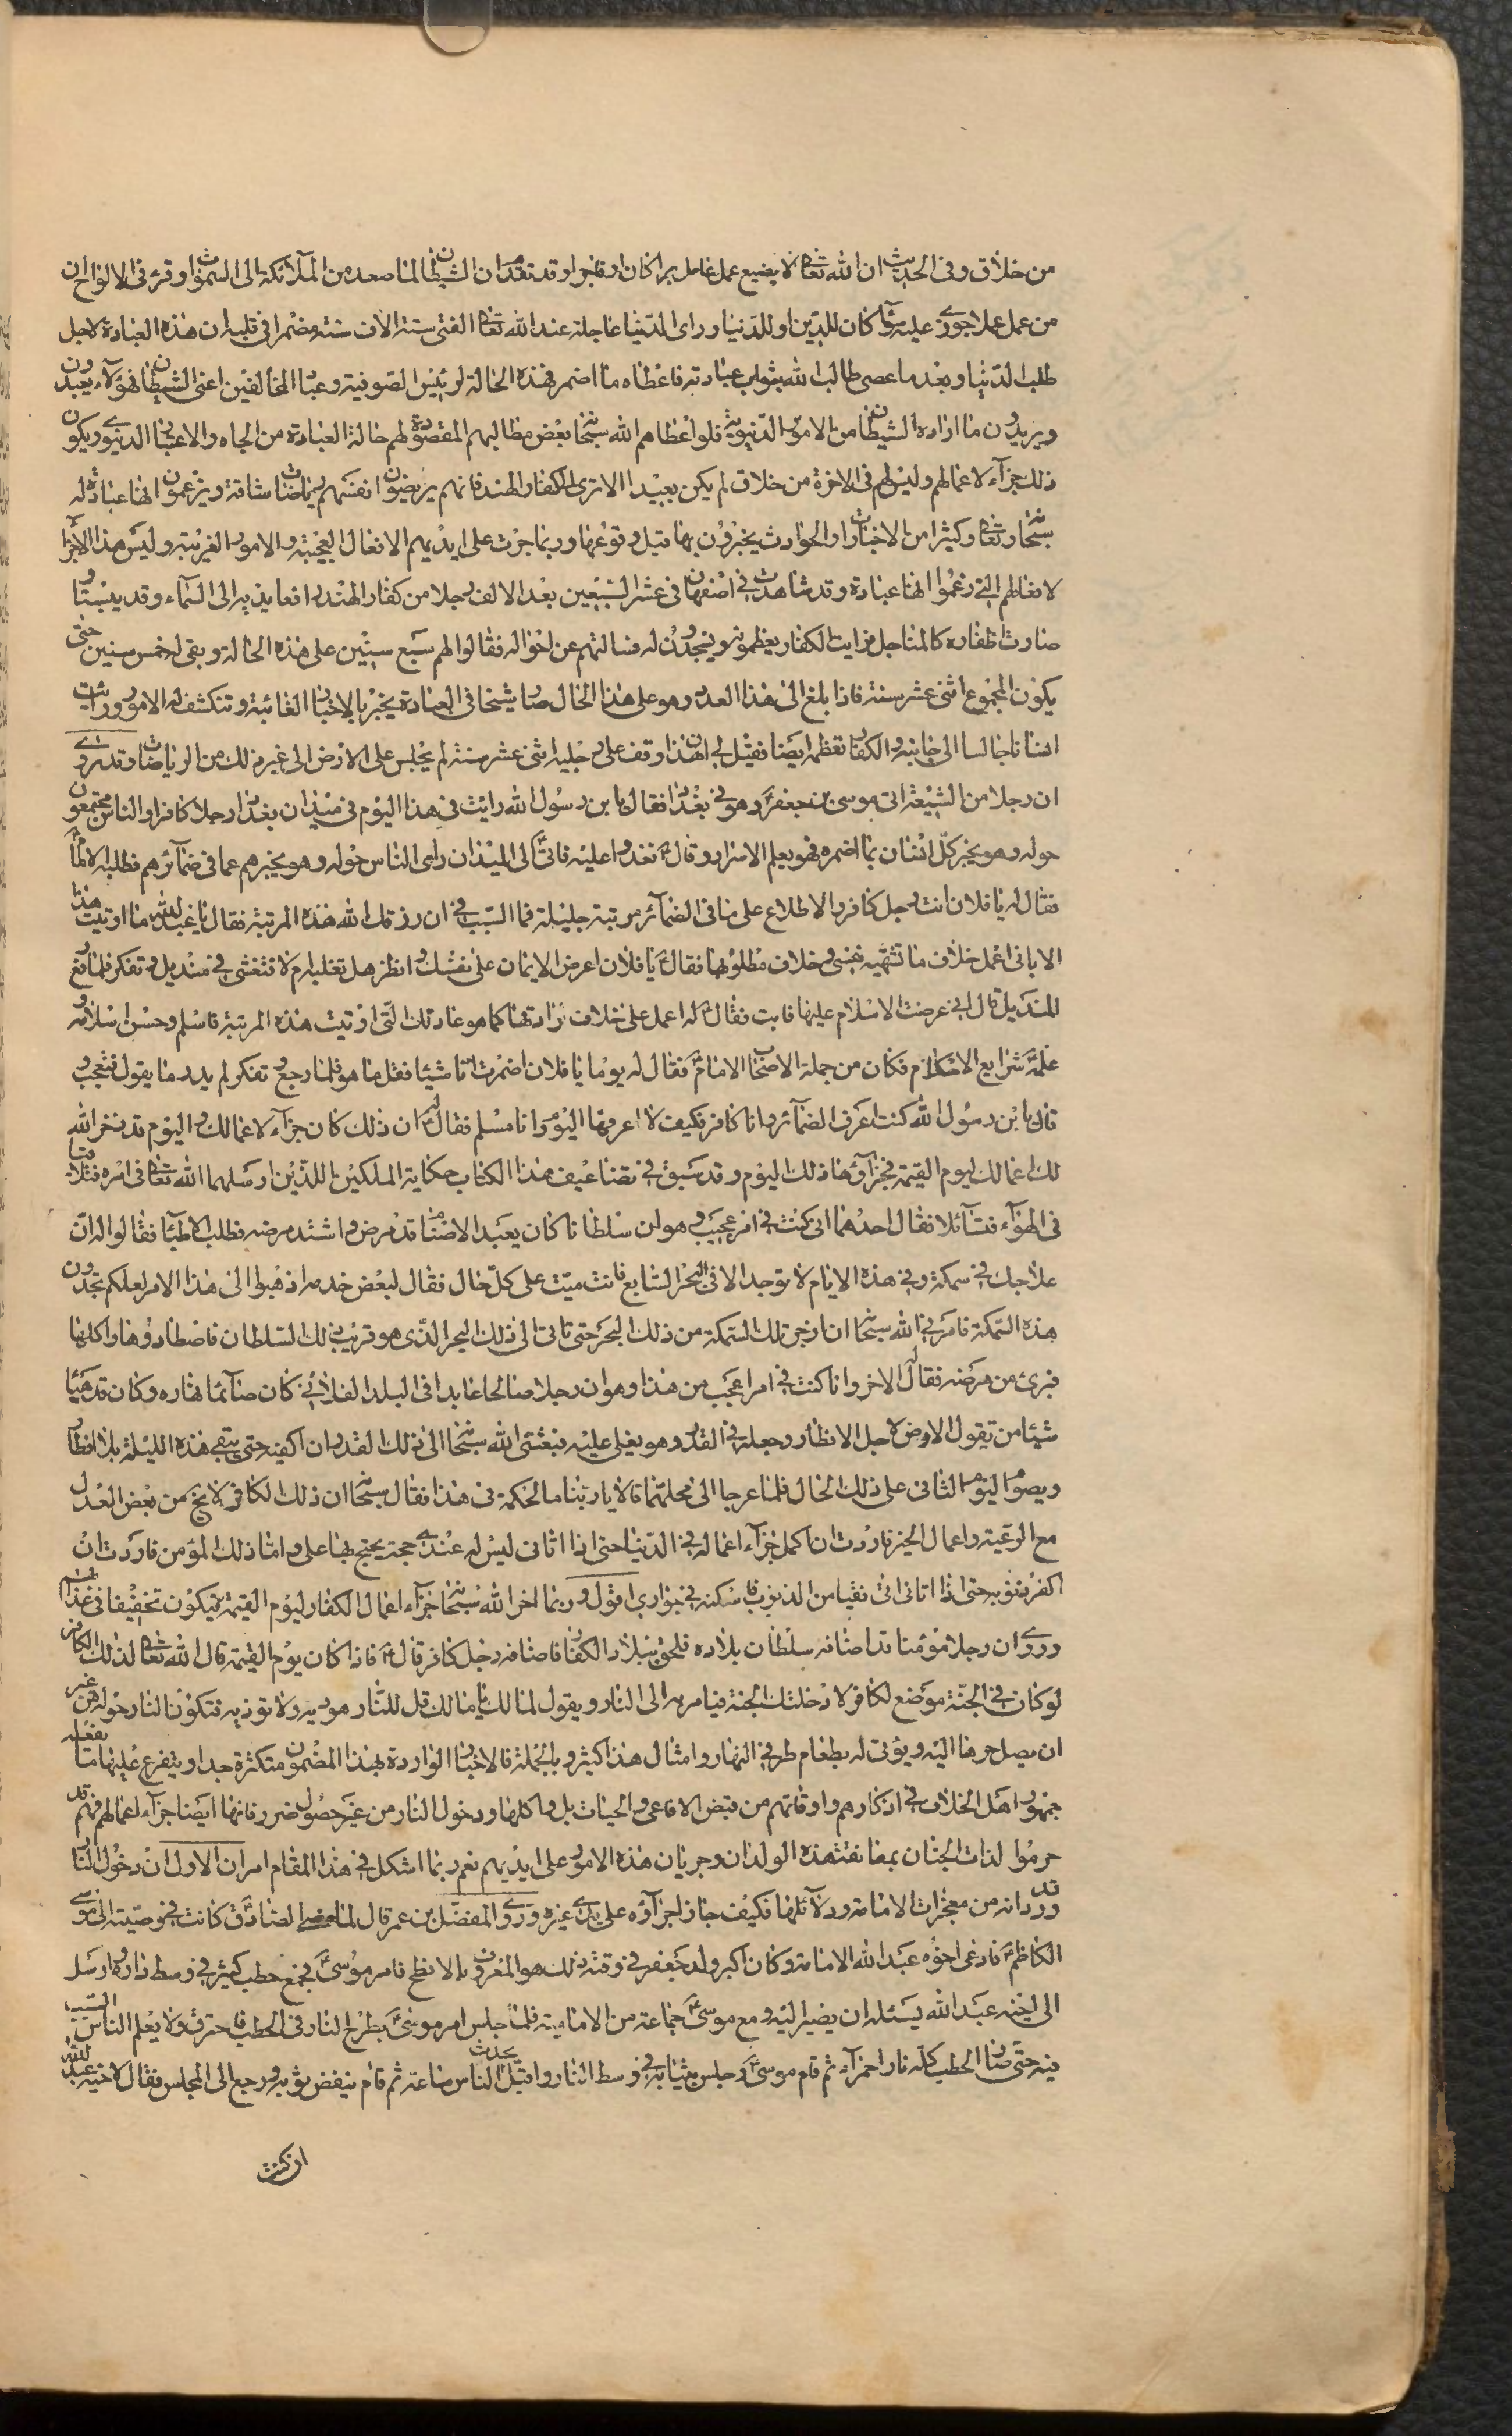 من خلاق وفى الحديث ان الله تعالى لا يضيع عمل عامل برا كان او فاجرا وقد تقدم ان الشيطان لما صعد من الملائكة الى السموات وقرء فى الالواح ان
من عمل عملا جوزى عليه سواء كان للدين او للدنيا وراى الدنيا عاجلة عند الله تعالى الفتى ستة الاف سنة مضمرا فى قلبه ان هذه العبادة لاجل
طلب الدنيا وبعد ما عصى طالب الله بثواب عبادته فاعطاه ما اضمر فهذه الحالة لرئيس الصوفية وعباد المخالفين اعنى الشيطان فهؤلاء يعبدون
ويريدون ما اراده الشيطان من الامور الدنيوية فلو اعطاهم الله سبحانه بعض مطالبهم المقصودة لهم حالة العبادة من الجاه والاعتبار الدنيوى ويكون
ذلك جزآء لاعمالهم وليس لهم فى الاخرة من خلاق لم يكن بعيدا الا ترى الكفار الهند فانهم يريضون انفسهم برياضات شاقة ويزعمون انها عبادة له
سبحانه وتعالى وكثيرا من الاخبارات او الحوادث يخبرون بها قبل وقوعها وربما جرت على ايديهم الافعال العجيبة والامور الغريبة وليس هذا الا جزآء
لافعالهم التى زعموا انها عبادة وقد شاهدت فى اصفهان فى عشر السبعين بعد الالف رجلا من كفار الهند رافعا يديه الى السمآء وقد يبستا و
صارت اظفاره كالمناجل فرايت الكفار يعظمونه ويسجدون له فسالتهم عن احواله فقالوا لهم سبع سنين على هذه الحالة وبقى له خمس سنين حتى
يكون المجموع اثنى عشر سنة فاذا بلغ الى هذا العدد وهو على هذا الحال صار شيخا فى العبادة يخبر بالاخبار الغائبة وتنكشف له الامور ورئيت
انسانا جالسا الى جانبه والكفار تعظمه ايضا فقيل لى ان هذا وقف على رجليه اثنى عشر سنة لم يجلس على الارض الى غير ذلك من الرياضات وقد روى
ان رجلا من الشيعة اتى موسى بن جعفر ع وهو فى بغداد فقال يا بن رسول الله رايت فى هذا اليوم فى ميدان بغداد رجلا كافرا والناس مجتمعون
حوله وهو يخبر كل انسان بما اضمره فهو يعلم الاسرار وقال ع نغدو عليه فاتى ع الى الميدان راى الناس حوله وهو يخبرهم عما فى ضمآئرهم فطلبه الامام ع
فقال له يا فلان انت رجل كافر والاطلاع على ما فى الضمآئر مرتبة جليلة فما السبب فى ان رزقك الله هذه المرتبة فقال يا عبد الله ما اوتيت هذا
الا بانى اعمل خلاف ما تشتهيه نفسى وخلاف مطلوبها فقال ع يا فلان اعرض الايمان على نفسك وانظر هل تقبله ام لا فتغشى فى منديل وتفكر فلما رفع
المنديل قال انى عرضت الاسلام عليها فابت فقال ع له اعمل على خلاف ارادتها كما هو عادتك التى اوتيت هذه المرتبة فاسلم وحسن اسلامه و
علمه شرايع الاحكام فكان من جملة الاصحاب الامام ع فقال له يوما يا فلان اضمرت انا شيئا فقل ما هو فلما رجع وتفكر لم يدر ما يقول فتعجب و
قال يا بن رسول الله كنت اعرف الضمآئر وانا كافر فكيف لا اعرفها اليوم وانا مسلم فقال ع له ان ذلك كان جزآء لاعمالك واليوم قد ذخر الله
لك اعمالك ليوم القيمة فجزآؤها ذلك اليوم وقد سبق فى تضاعيف هذا الكتاب حكاية الملكين اللذين ارسلهما الله تعالى فى امره فتلاقيا
فى الهوآء فتسآئلا فقال احدهما انى كنت فى امر عجيب وهو ان سلطانا كان يعبد الاصنام قد مرض واشتد مرضه فطلب الاطبآء فقالوا له ان
علاجك فى سمكة وفى هذه الايام لا توجد الا فى البحر السابع فانت ميت على كل حال فقال لبعض خدمه اذهبوا الى هذا الامر لعلكم تجدون
هذه السمكة فامرنى الله سبحانه ان ازعج تلك السمكة من ذلك البحر حتى تاتى الى ذلك البحر الذى هو قريب ذلك السلطان فاصطادوها واكلها
فبرئ من مرضه فقال له الاخر وانا كنت فى امر اعجب من هذا وهو ان رجلا صالحا عابدا فى البلد الفلانى كان صآئما نهاره وكان قد هيأ
شيئا من بقول الارض لاجل الافطار وجعله فى القدر وهو يغلى عليه فبعثنى الله سبحانه الى ذلك القدر ان اكفيه حتى يبقى هذه الليلة بلا افطار
ويصوم اليوم الثانى على ذلك الحال فلما عرجا الى محلهما قالا يا ربنا ما الحكمة فى هذا فقال سبحانه ان ذلك الكافر لا يخ من بعض العدل
مع الرعية واعمال الخير فاردت ان اكمل جزآء اعماله فى الدنيا حتى اذا اتانى ليس له عندى حجة يحتج بها على واما ذلك المؤمن فاردت ان
اكفر ذنوبه حتى اذا اتانى اتى نقيا من الذنوب فاسكنه فى جوارى اقول وربما اخر الله سبحانه جزآء اعمال الكفار ليوم القيمة فيكون تخفيفا فى عذابهم
وروى ان رجلا مؤمنا قد اضافه سلطان بلاده فلحق ببلاد الكفار فاضافه رجل كافر قال ع فاذا كان يوم القيمة قال الله تعالى لذلك الكافر
لو كان فى الجنة موضع لكافر لادخلتك الجنة فيامر به الى النار ويقول لمالك يا مالك قل للنار هويه ولا توذيه فتكون النار حوله من غير
ان يصل حرها اليه ويؤتى له بطعام طرفى النهار وامثال هذا كثير وبالجملة فالاخبار الواردة بهذا المضمون متكثرة جدا ويتفرع عليها ما تفعله
جمهور اهل الخلاف فى اذكارهم واوقاتهم من قبض الافاعى والحيات بل واكلها ودخول النار من غير حصول ضرر فانها ايضا جزآء اعمالهم فهم قد
حرموا لذات الجنان بمعانقة هذه الولدان وجريان هذه الامور على ايديهم نعم ربما اشكل فى هذا المقام امران الاول ان دخول النار
قد ورد انه من معجزات الامامة ودلآئلها فكيف جاز اجزآؤه على يدى غيره وروى المفضل بن عمر قال لما مضى الصادق ع كانت فى وصيته الى موسى
الكاظم ع فادعى اخوه عبد الله الامامة وكان اكبر ولد جعفر فى وقته ذلك هو المعروف بالافطح فامر موسى ع فجمع حطب كثير فى وسط داره وارسل
الى اخيه عبد الله يسئله ان يصير اليه ومع موسى ع جماعة من الامامية فلما جلس امر موسى ع بطرح النار فى الحطب فاحترق ولا يعلم الناس السبب
فيه حتى صار الحطب كله نارا حمرآء ثم قام موسى ع وجلس بثيابه فى وسط النار واقبل يحدث الناس ساعة ثم قام ينفض ثوبه ورجع الى المجلس فقال لاخيه عبد الله
ان كنت